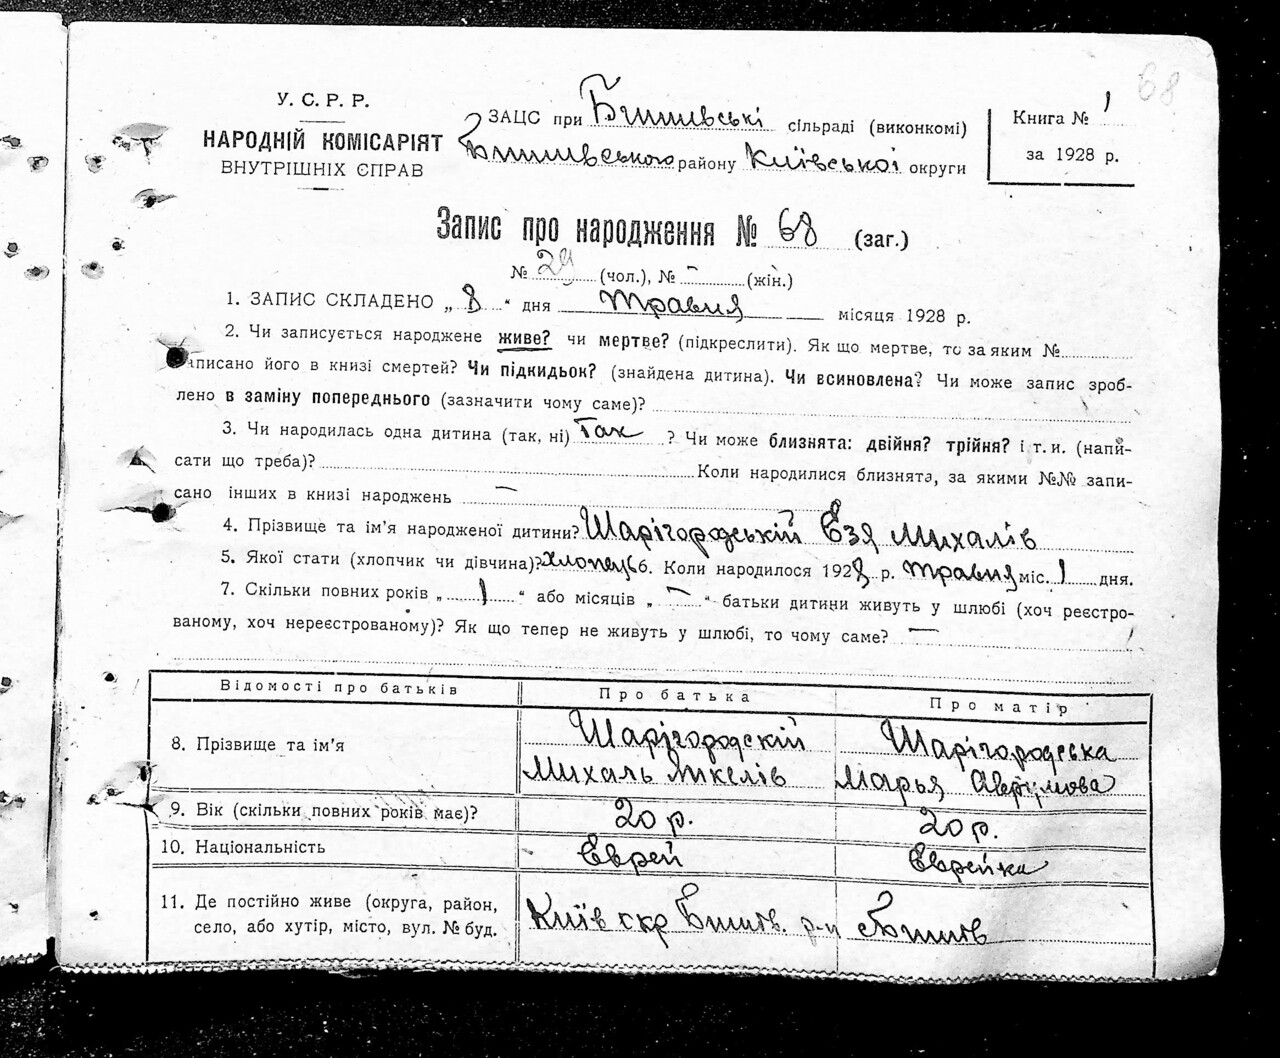 68
У. С. Р. Р.
НАРОДНІЙ КОМІСАРІЯТ
ВНУТРІШНІХ СПРАВ
ЗАЦС при Бишивські сільраді (виконкомі)
Бишивського району Київської округи
Книга № 1
за 1928 р.
Запис про народження № 68 (заг.)
№ 29 (чол.), № – (жін.)
1. ЗАПИС СКЛАДЕНО „ 8 “ дня травня місяця 1928 р.
2. Чи записується народжене живе? чи мертве? (підкреслити). Як що мертве, то за яким №
записано його в книзі смертей? Чи підкидьок? (знайдена дитина). Чи всиновлена? Чи може запис зроб-
лено в заміну попереднього (зазначити чому саме)?
3. Чи народилась одна дитина (так, ні) Так ? Чи може близнята: двійня? трійня? і т. и. (напи-
сати що треба)? Коли народилися близнята, за якими №№ запи-
сано інших в книзі народжень –
4. Прізвище та ім'я народженої дитини? Шарігородській Езя Михалів
5. Якої стати (хлопчик чи дівчина)? хлопець 6. Коли народилося 1928 р. травня міс. 1 дня.
7. Скільки повних років „ 1 “ або місяців „ – “ батьки дитини живуть у шлюбі (хоч реєстро-
ваному, хоч нереєстрованому)? Як що тепер не живуть у шлюбі, то чому саме? –
Відомості про батьків Про батька Про матір
8. Прізвище та ім'я Шарігородскій Шарігородська
Михаль Марья Аврумова
9. Вік (скільки повних років має)? 20 р. 20 р.
10. Національність Еврей Еврейка
11. Де постійно живе (округа, район,
село, або хутір, місто, вул. № буд. Київ окр Бишів. р-н Бишів